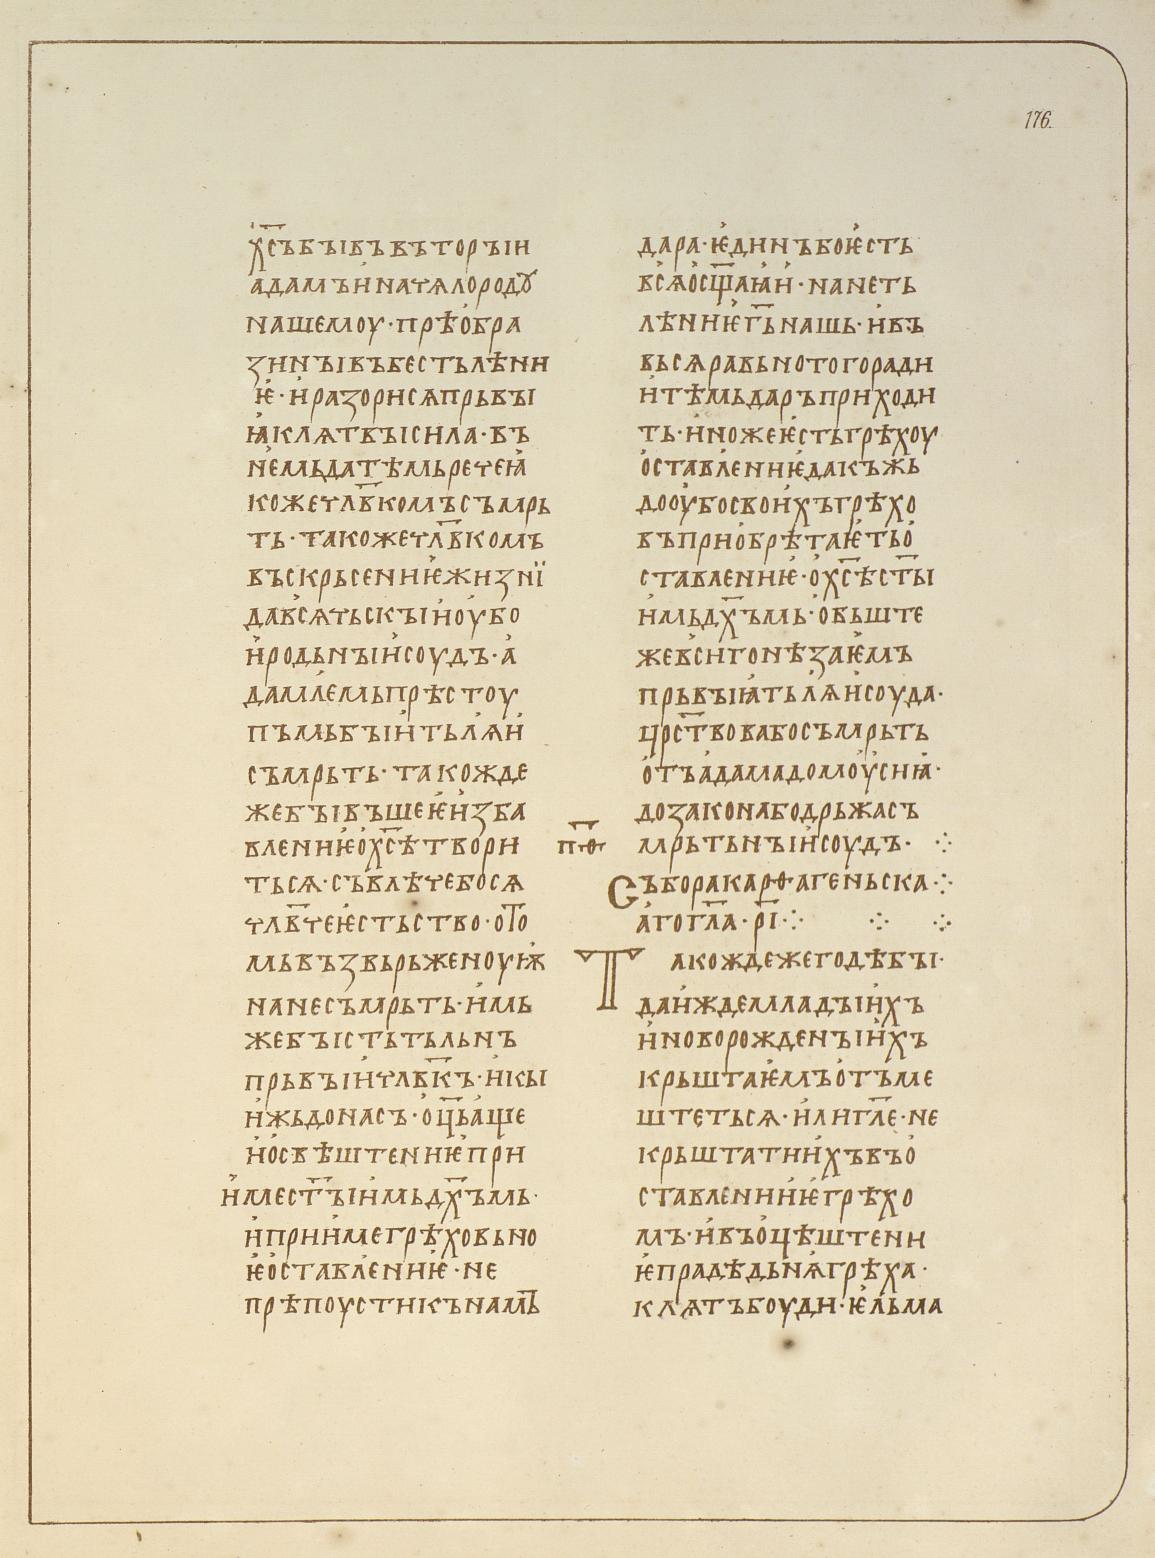 176.
х҃събꙑвъвъторꙑи
адамъиначѧлороду
нашемоу·прѣобра
зинꙑвъбестьлѣни
ѥ·иразорисѧпрьвꙑ
ꙗклѧтвꙑсила·въ
немьдатѣмьречеꙗ
кожечл҃вкомъсъмрь
ть·такожечл҃вкомъ
въскрьсениѥжизнї
давсѧтьскꙑиоубо
иродьнꙑисоудъ·а
дамлемьпрѣстоу
пъмьбꙑитьлѧи
съмрьть·такожде
жебꙑвъшеѥизба
влениѥох҃сѣтвори
тьсѧ·съвлѣчебосѧ
чл҃вчеѥстьство·ото
мьвъзвьрьженоуѭ
нанесъмрьть·имь
жебꙑстьтьльнъ
прьвꙑичл҃вкъ·икы
ижьдонасъ·оц҃ьаще
иосвѣштениѥпри
имест҃ꙑимьдх҃ъмь·
иприимегрѣховьно
ѥоставлениѥ·не
прѣпоустикънамь
дара·ѥдинъбоѥсть
всѧосщ҃аꙗи·нанеть
лѣниѥг҃ьнашь·ивъ
вьсѧравьнотогоради
итѣмьдаръприходи
ть·иножеѥстьгрѣхоу
оставлениѥдакъжь
дооубосвоихъгрѣхо
въприобрѣтаѥтьо
ставлениѥ·ох҃сѣст҃ꙑ
имьдх҃ъмь·обьште
жевсигонѣзаѥмъ
прьвꙑꙗтьлѧисоуда·
црс҃твовабосъмрьть
отъадамадомоусиꙗ·
дозаконабодрьжасъ
пѳ҃ мрьтьнꙑисоудъ· ⁘
Съборакарѳагеньска⁘
агогл҃а·рі҃⁘ ⁘ ⁘
Такождежегодѣбꙑ·
даиждемладꙑихъ
иноворожденꙑихъ
крьштаѥмъотъме
штеться·илигл҃е·не
крьштатиихъвъо
ставлениѥгрѣхо
мъ·ивъоцѣштени
ѥпрадѣдьнѧгрѣха·
клѧтъбоуди·ѥльма